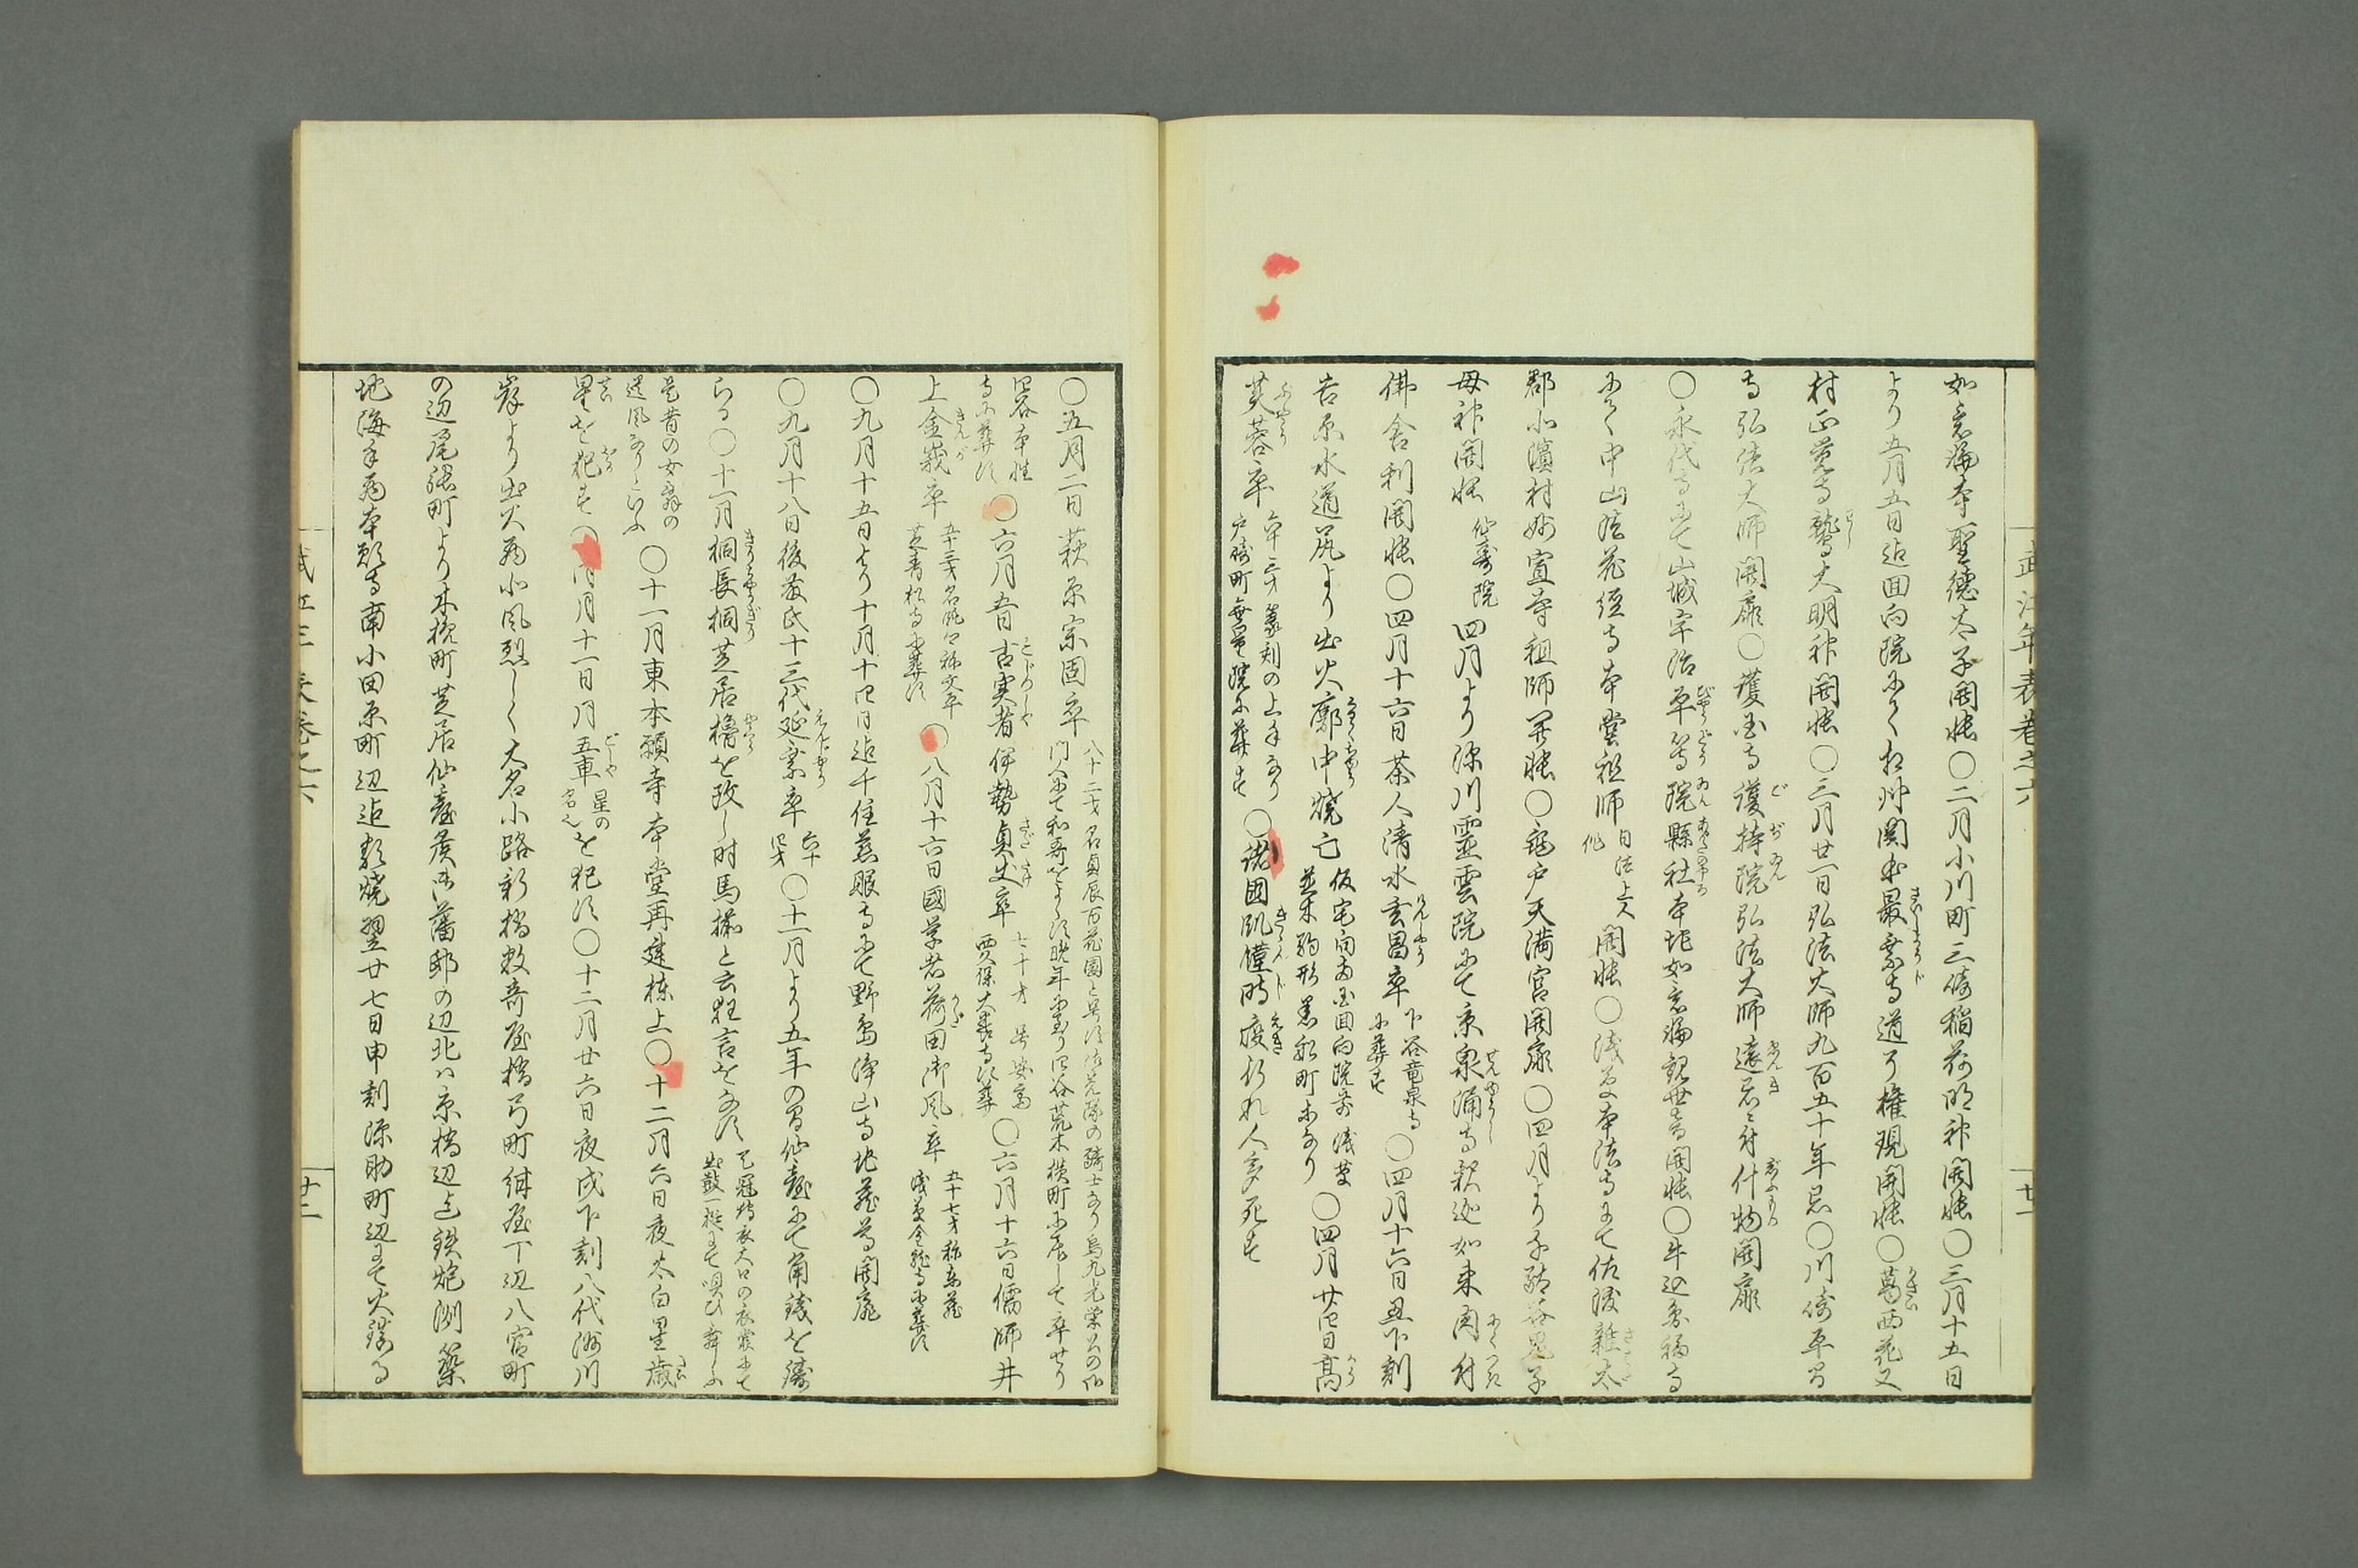 如意輪寺聖徳太子開帳〇二月小川町三崎稲荷明神開帳〇三月十五日
より五月五日迄回向院にて相州関本最乗寺道了権現開帳〇葛西花又
村正覚寺鷲大明神開帳〇三月廿一日弘法大師九百五十年忌〇川崎平間
寺弘法大師開扉〇護国寺護持院弘法大師遠忌に付什物開扉
〇永代寺にて山城宇治平等院縣社本地如意輪観世音開帳〇牛込多福寺
にて中山法花経寺本堂祖師日法上人作開帳〇浅草本法寺にて佐渡雑太
郡小濵村妙宣寺祖師開帳〇亀戸天満宮開扉〇四月より子ノ谷鬼子
母神開帳仙壽院四月より深川霊雲院にて京泉涌寺釈迦如来肉付
佛舎利開帳〇四月十六日茶人清水玄昌卒下谷竜泉寺に葬す〇四月十六日丑下刻
吉原水道尻より出火廓中焼亡仮宅向両国回向院前浅草並木駒形黒船町なり〇四月廿四日高
芙蓉卒六十三才篆刻の上手なり戸崎町無量院に葬す〇諸國飢饉時疫行れ人多死す
武江年表巻之六
廿一
〇五月二日萩原宗固卒八十二才名貞辰百花園と号す御先隊の騎士なり烏丸光栄公の御門人にて和哥をよくす晩年に至り四谷荒木横町に居して卒せり
四谷本性寺に葬す〇六月五日古実者伊勢貞丈卒七十才号安斎西久保大養寺に葬〇六月十六日儒師井
上金峩卒五十三才名純卿称文平芝青松寺に葬す〇八月十六日國学者荷田御風卒五十七才称東蔵浅草金龍寺に葬す
〇九月十五日より十月十四日迄千住慈眼寺にて野島浄山寺地蔵尊開扉
〇九月十八日後藤氏十三代延乗卒六十四才〇十一月より五年の間仙臺にて角銭を鋳
らる〇十一月桐長桐芝居櫓を改し時馬揃と云狂言をなす
是昔の女舞の遺風なりといふ〇十一月東本願寺本堂再建棟上〇十二月六日夜太白星歳
星を犯す〇同月十一日月五車星の名也を犯す〇十二月廿六日夜戌下刻八代洲川
岸より出火為北風烈しく大名小路新橋数寄屋橋弓町紺屋丁辺八官町
の辺尾張町より木挽町芝居仙臺侯御藩邸の辺北ハ京橋辺迄鉄炮洲築
地海手西本願寺南小田原町辺迄類焼翌廿七日申刻源助町辺にて火鎮る
廿二